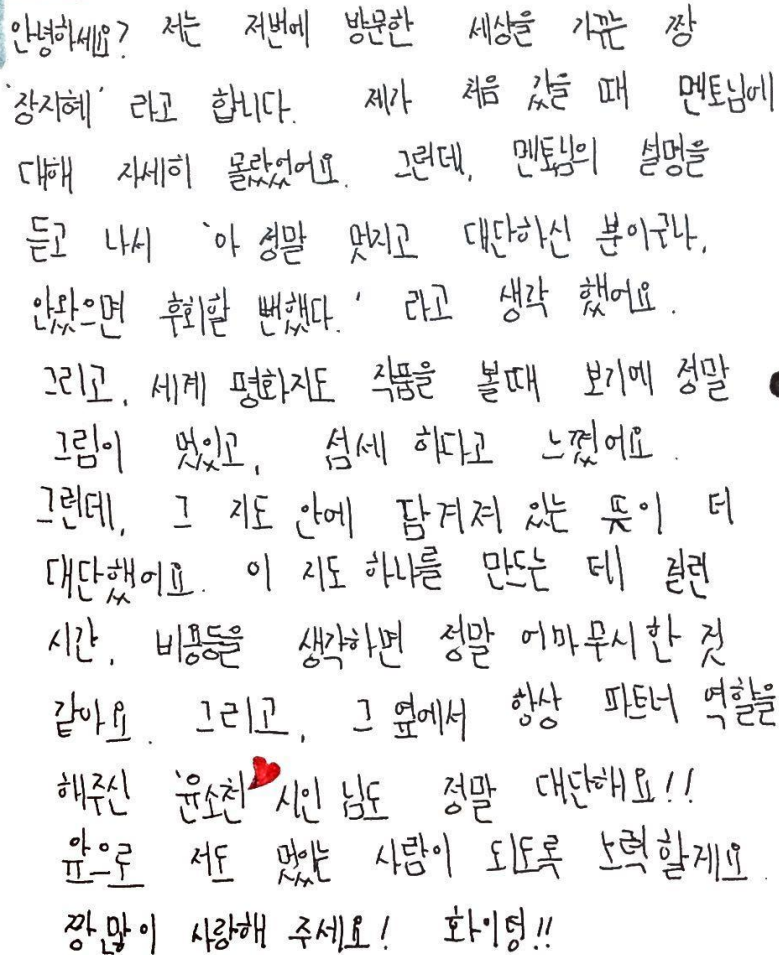 안녕하세요? 저는 저번에 방문한 세상을 가꾸는 짱
'장지혜' 라고 합니다. 제가 처음 갔을 때 멘토님에
대해 자세히 몰랐었어요. 그런데, 멘토님의 설명을
듣고 나서 '아 정말 멋지고 대단하신 분이구나,
안왔으면 후회할 뻔했다.' 라고 생각 했어요.
그리고, 세계 평화지도 작품을 볼때 보기에 정말
그림이 멋있고, 섬세 하다고 느꼈어요.
그런데, 그 지도 안에 담겨져 있는 뜻이 더
대단했어요. 이 지도 하나를 만드는 데 걸린
시간, 비용등을 생각하면 정말 어마무시한 것
같아요. 그리고, 그 옆에서 항상 파트너 역할을
해주신 '윤소천' 시인 님도 정말 대단해요!!
앞으로 저도 멋있는 사람이 되도록 노력할게요.
짱 많이 사랑해 주세요! 화이팅!!